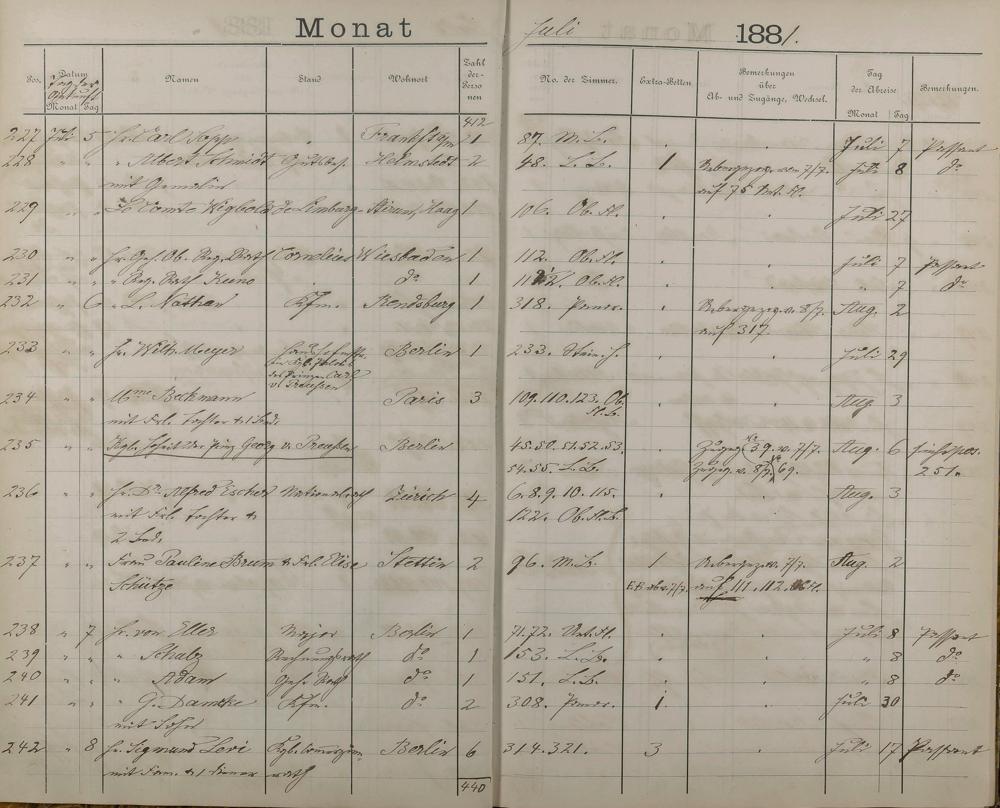 Monat Juli 1881.
Pos. Datum Tag der Ankunft Monat Tag Namen Stand Wohnort Zahl der Personen No. der Zimmer. Extra-Betten Bemerkungen über Ab- und Zugänge, Wechsel. Tag der Abreise Monat Tag Bemerkungen.
412
227 Juli 5 Hr. Carl Popp Frankft a/m 1 87. M.L. Juli 7 Passant
228 " " " Albert Schmidt Gutsbes. Helmstedt 2 48. L.L. 1 Uebergezog. am 7/7. Juli 8 do
mit Gemalin auf 75 Unt. H.
229 " " Le Comte Wigbold de Limburg-Stirum, Haag 1 106. Ob. H. Juli 27
230 " " Hr. Geh. Ob. Reg. Rath Cornelius Wiesbaden 1 112. Ob. H. Juli 7 Passant
231 " " " Reg. Rath do 1 Ob. H. " 7 do
232 " 6 " L. Nathan Kfm. Rendsburg 1 318. Uebergezog. v. 8/7. Aug. 2
auf 317
233 " " Hr. Wilh. Meyer Berlin 1 233. Juli 29
des Prinzen Carl
v. Preussen
234 " " Mme Beckmann Paris 3 109. 110. 123. Ob. Aug. 3
mit Frl. Tochter & 1 Bed. H.L.
235 " " Kgl. Hoheit der Prinz Georg v. Preußen Berlin 45. 50. 51. 52. 53. Zugeg. No 39. v. 7/7. Aug. 6 siehe pos.
54. 55. L.L. Zugeg. v. 8/7. No 69. 251.
236 " " Hr. Dr. Alfred Escher Nationalrath Zürich 4 6. 8. 9. 10. 115. Aug. 3
mit Frl. Tochter & 122. Ob. H.L.
2 Bed.
237 " " Frau Pauline Brumm & Frl. Elise Stettin 2 96. M.L. 1 Uebergez. v. 7/7. Aug. 2
Schütze E.B. ab v. 7/7. auf 111. 112. Ob H.
238 " 7 Hr. von Eller Major Berlin 1 71. 72. Unt. H. Juli 8 Passant
239 " " " Schulz Rechnungsrath do 1 153. L.L. " 8 do
240 " " " Adam Geh. Rath do 1 151. L.L. " 8 do
241 " " " G. Damcke Kfm. do 2 308. 1 Juli 30
mit Sohn
242 " 8 Hr. Sigmund Levi Kgl. Commerzien- Berlin 6 314. 321. 3 Juli 17 Passant
mit Fam. & 1 Diener rath
440